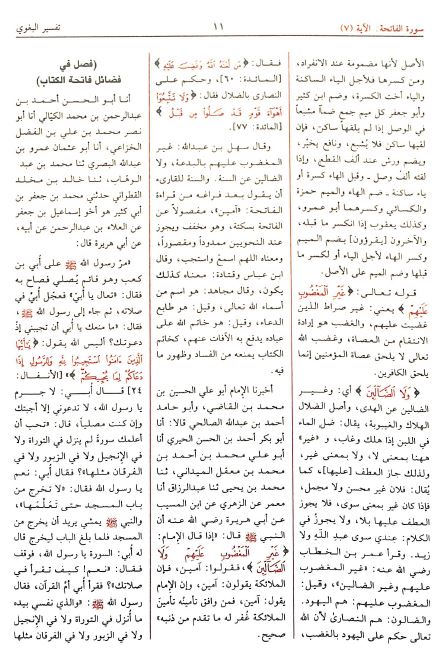 سورة الفاتحة: الآية (٧)
١١
تفسير البغوي
الأصل لأنها مضمومة عند الانفراد،
ومن كسرها فلأجل الياء الساكنة
والياء أخت الكسرة، وضم ابن كثير
وأبو جعفر كل ميم جمع ضماً مشبعاً
في الوصل إذا لم يلقها ساكن، فإن
لقيها ساكن فلا يُشبع، ونافع يخيّر،
ويضم ورش عند ألف القطع، وإذا
لقته ألف وصل ـ وقبل الهاء كسرة أو
ياء ساكنة ـ ضم الهاء والميم حمزة
والكسائي وكسرهما أبو عمرو،
وكذلك يعقوب إذا انكسر ما قبله،
والآخرون [يقرؤون] بضم الميم
وكسر الهاء لأجل الياء أو لكسر ما
قبلها وضم الميم على الأصل.
قوله تعالى: ﴿غَيْرِ الْمَغْضُوبِ
عَلَيْهِمْ﴾ يعني: غير صراط الذين
غضبت عليهم، والغضب هو إرادة
الانتقام من العصاة، وغضب الله
تعالى لا يلحق عصاة المؤمنين إنما
يلحق الكافرين.
﴿وَلَا الضَّالِّينَ﴾ أي: وغير
الضالين عن الهدى، وأصل الضلال
الهلاك والغيبوبة، يقال: ضل الماء
في اللبن إذا هلك وغاب، و «غير»
ههنا بمعنى لا، ولا بمعنى غير،
ولذلك جاز العطف [عليها]، كما
يُقال: فلان غير محسن ولا مجمل،
فإذا كان غير بمعنى سوى فلا يجوز
العطف عليها بلا، ولا يجوز في
الكلام: عندي سوى عبد الله ولا
زيد. وقرأ عمر بن الخطاب
رضي الله عنه: «غير المغضوب
عليهم وغير الضالين»، وقيل:
المغضوب عليهم: هم اليهود،
والضالون: هم النصارى لأن الله
تعالى حكم على اليهود بالغضب،
فقال: ﴿مَن لَّعَنَهُ اللَّهُ وَغَضِبَ عَلَيْهِ﴾
[المائدة: ٦٠]، وحكم على
النصارى بالضلال فقال: ﴿وَلَا تَتَّبِعُوا
أَهْوَاءَ قَوْمٍ قَدْ ضَلُّوا مِن قَبْلُ﴾
[المائدة: ٧٧].
وقال سهل بن عبدالله: غير
المغضوب عليهم بالبدعة، ولا
الضالين عن السنة. والسنة للقارىء
أن يقول بعد فراغه من قراءة
الفاتحة: «آمين»، مفصولاً عن
الفاتحة بسكتة، وهو مخفف ويجوز
عند النحويين ممدوداً ومقصوراً،
ومعناه اللهم اسمع واستجب، وقال
ابن عباس وقتادة: معناه كذلك
يكون، وقال مجاهد: هو اسم من
أسماء الله تعالى، وقيل: هو طابع
الدعاء، وقيل: هو خاتم الله على
عباده يدفع به الآفات عنهم، كخاتم
الكتاب يمنعه من الفساد وظهور ما
فيه.
أخبرنا الإمام أبو علي الحسين بن
محمد بن القاضي، وأبو حامد
أحمد بن عبدالله الصالحي قالا: أنا
أبو بكر أحمد بن الحسن الحيري أنا
محمد بن معقل الميداني، ثنا
محمد بن يحيى ثنا عبدالرزاق أنا
معمر عن الزهري عن ابن المسيب
عن أبي هريرة رضي الله عنه أن
النبي ﷺ قال: «إذا قال الإمام:
﴿غَيْرِ الْمَغْضُوبِ عَلَيْهِمْ وَلَا
الضَّالِّينَ﴾، فقولوا: آمين، فإن
الملائكة يقولون: آمين، وإن الإمام
يقول: آمين، فمن وافق تأمينُه تأمينَ
الملائكة غُفر له ما تقدم من ذنبه»
صحيح.
(فصل في
فضائل فاتحة الكتاب)
أنا أبو الحسن أحمد بن
عبدالرحمن بن محمد الكيالي أنا أبو
نصر محمد بن علي بن الفضل
الخزاعي، أنا أبو عثمان عمرو بن
عبدالله البصري ثنا محمد بن عبد
الوهاب، ثنا خالد بن مخلد
القطواني حدثني محمد بن جعفر بن
أبي كثير هو أخو إسماعيل بن جعفر
عن العلاء بن عبدالرحمن عن أبيه،
عن أبي هريرة قال:
«مرّ رسول الله ﷺ على أبي بن
كعب وهو قائم يُصلي فصاح به
فقال: «تعال يا أبيّ» فعجل أُبيّ في
صلاته، ثم جاء إلى رسول الله ﷺ،
فقال: «ما منعك يا أُبي أن تجيبني إذ
دعوتك؟ أليس الله يقول: ﴿يَا أَيُّهَا
الَّذِينَ آمَنُوا اسْتَجِيبُوا لِلَّهِ وَلِلرَّسُولِ إِذَا
دَعَاكُمْ لِمَا يُحْيِيكُمْ﴾» [الأنفال:
٢٤] قال أُبي: لا جرم
يا رسول الله، لا تدعوني إلا أجبتك
وإن كنت مصلياً، قال: «تحب أن
أعلمك سورة لم ينزل في التوراة ولا
في الإنجيل ولا في الزبور ولا في
الفرقان مثلها»؟ فقال أبي: نعم
يا رسول الله، فقال: «لا تخرج من
باب المسجد حتى تعلّمها»،
والنبي ﷺ يمشي يريد أن يخرج من
المسجد فلما بلغ الباب ليخرج قال
له أُبي: السورة يا رسول الله، فوقف
فقال: «نعم! كيف تقرأ في
صلاتك»؟ فقرأ أُبي أمّ القرآن، فقال
رسول الله ﷺ: «والذي نفسي بيده
ما أُنزل في التوراة ولا في الإنجيل
ولا في الزبور ولا في الفرقان مثلها